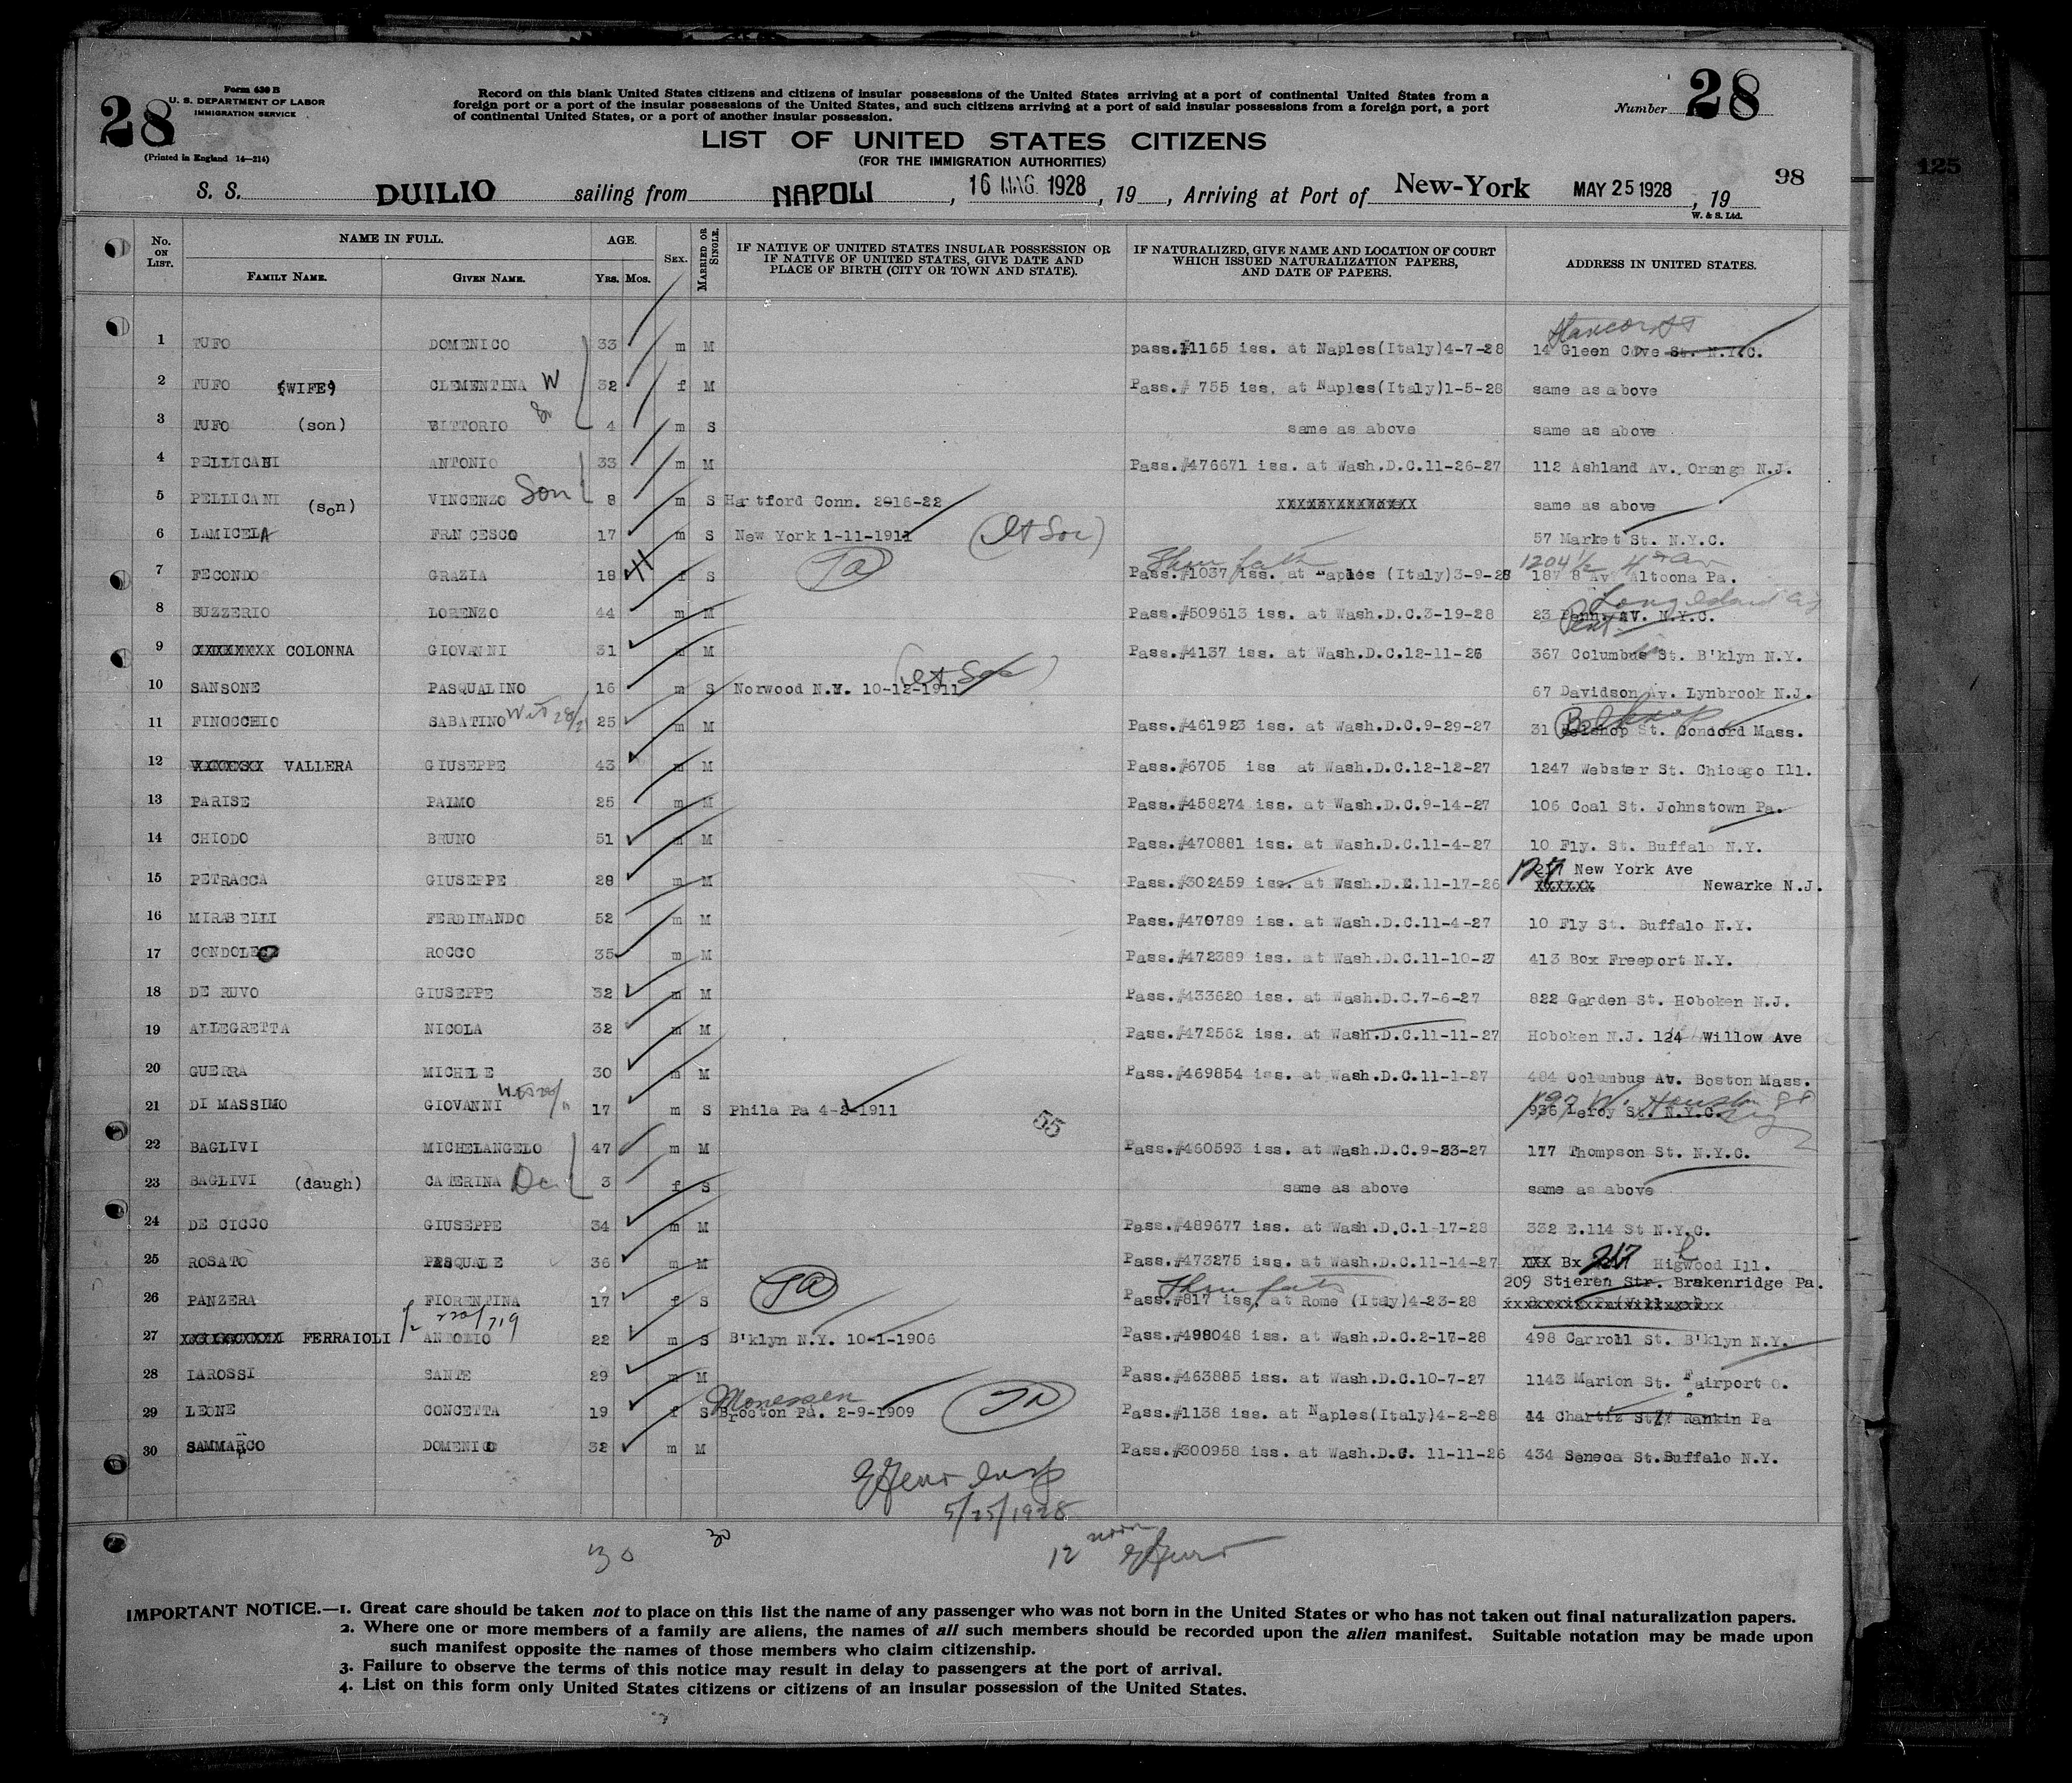 Form 630 B
U. S. DEPARTMENT OF LABOR
IMMIGRATION SERVICE
28
(Printed in England 14—214)
Record on this blank United States citizens and citizens of insular possessions of the United States arriving at a port of continental United States from a
foreign port or a port of the insular possessions of the United States, and such citizens arriving at a port of said insular possessions from a foreign port, a port
of continental United States, or a port of another insular possession.
Number 28
LIST OF UNITED STATES CITIZENS
(FOR THE IMMIGRATION AUTHORITIES)
98
125
S. S. DUILIO sailing from NAPOLI, 16 MAG. 1928, 19, Arriving at Port of New-York MAY 25 1928, 19
W. & S. Ltd.
No. ON LIST. NAME IN FULL. FAMILY NAME. GIVEN NAME. AGE. YRS. MOS. SEX. MARRIED OR SINGLE. IF NATIVE OF UNITED STATES INSULAR POSSESSION OR IF NATIVE OF UNITED STATES, GIVE DATE AND PLACE OF BIRTH (CITY OR TOWN AND STATE). IF NATURALIZED, GIVE NAME AND LOCATION OF COURT WHICH ISSUED NATURALIZATION PAPERS, AND DATE OF PAPERS. ADDRESS IN UNITED STATES.
1 TUFO DOMENICO 33 m M pass.#1165 iss. at Naples(Italy)4-7-28 14 Gleen Cove St. N.Y.C.
2 TUFO (WIFE) CLEMENTINA W 32 f M Pass.# 755 iss. at Naples(Italy)1-5-28 same as above
3 TUFO (son) VITTORIO 4 m S same as above same as above
4 PELLICANI ANTONIO 33 m M Pass.#476671 iss. at Wash.D.C.11-26-27 112 Ashland Av. Orange N.J.
5 PELLICANI (son) VINCENZO Son 8 m S Hartford Conn. 2-16-22 XXXXXXXXXXXXXX same as above
6 LAMICELA FRANCESCO 17 m S New York 1-11-1911 57 Market St. N.Y.C.
7 FECONDO GRAZIA 18 f S Pass.#1037 iss. at Naples (Italy)3-9-28 1204 1/2 187 8 Av Altoona Pa.
8 BUZZERIO LORENZO 44 m M Pass.#509613 iss. at Wash.D.C.3-19-28 23 Penn. AV. N.Y.C. Long Island City
9 XXXXXXXX COLONNA GIOVANNI 31 m M Pass.#4137 iss. at Wash.D.C.12-11-26 367 Columbus St. B'klyn N.Y.
10 SANSONE PASQUALINO 16 m S Norwood N.Y. 10-12-1911 67 Davidson Av. Lynbrook N.J.
11 FINOCCHIO SABATINO 25 m M Pass.#461923 iss. at Wash.D.C.9-29-27 31 St. Concord Mass.
12 XXXXXXX VALLERA GIUSEPPE 43 m M Pass.#6705 iss at Wash.D.C.12-12-27 1247 Webster St. Chicago Ill.
13 PARISE PALMO 25 m M Pass.#458274 iss. at Wash.D.C.9-14-27 106 Coal St. Johnstown Pa.
14 CHIODO BRUNO 51 m M Pass.#470881 iss. at Wash.D.C.11-4-27 10 Fly. St. Buffalo N.Y.
15 PETRACCA GIUSEPPE 28 m M Pass.#302459 iss. at Wash.D.C.11-17-26 New York Ave XXXXXX Newarke N.J.
16 MIRABELLI FERDINANDO 52 m M Pass.#470789 iss. at Wash.D.C.11-4-27 10 Fly St. Buffalo N.Y.
17 ROCCO 35 m M Pass.#472389 iss. at Wash.D.C.11-10-27 413 Box Freeport N.Y.
18 DE RUVO GIUSEPPE 32 m M Pass.#433620 iss. at Wash.D.C.7-6-27 822 Garden St. Hoboken N.J.
19 ALLEGRETTA NICOLA 32 m M Pass.#472562 iss. at Wash.D.C.11-11-27 Hoboken N.J. 124 Willow Ave
20 GUERRA MICHELE 30 m M Pass.#469854 iss. at Wash.D.C.11-1-27 484 Columbus Av. Boston Mass.
21 DI MASSIMO GIOVANNI 17 m S Phila Pa 4-2-1911 55 936 Leroy St. N.Y.C. 197 W. Houston St
22 BAGLIVI MICHELANGELO 47 m M Pass.#460593 iss. at Wash.D.C.9-23-27 177 Thompson St. N.Y.C.
23 BAGLIVI (daugh) CATERINA Da 3 f S same as above same as above
24 DE CICCO GIUSEPPE 34 m M Pass.#489677 iss. at Wash.D.C.1-17-28 332 E.114 St N.Y.C.
25 ROSATO PASQUALE 36 m M Pass.#473275 iss. at Wash.D.C.11-14-27 XXX Bx 217 Highwood Ill.
26 PANZERA FIORENTINA 17 f S Pass.#817 iss. at Rome (Italy)4-23-28 209 Stieren Str. Brakenridge Pa.
27 XXXXXXXXXX FERRAIOLI ANTONIO 22 m S B'klyn N.Y. 10-1-1906 Pass.#498048 iss. at Wash.D.C.2-17-28 498 Carroll St. B'klyn N.Y.
28 IAROSSI SANTE 29 m M Pass.#463885 iss. at Wash.D.C.10-7-27 1143 Marion St. Fairport O.
29 LEONE CONCETTA 19 f S Monessen Brocton Pa. 2-9-1909 Pass.#1138 iss. at Naples(Italy)4-2-28 44 Chartiz St. Rankin Pa
30 SAMMARCO DOMENICO 32 m M Pass.#300958 iss. at Wash.D.C. 11-11-26 434 Seneca St.Buffalo N.Y.
5/25/1928
30 30 12 noon
IMPORTANT NOTICE.—1. Great care should be taken not to place on this list the name of any passenger who was not born in the United States or who has not taken out final naturalization papers.
2. Where one or more members of a family are aliens, the names of all such members should be recorded upon the alien manifest. Suitable notation may be made upon
such manifest opposite the names of those members who claim citizenship.
3. Failure to observe the terms of this notice may result in delay to passengers at the port of arrival.
4. List on this form only United States citizens or citizens of an insular possession of the United States.